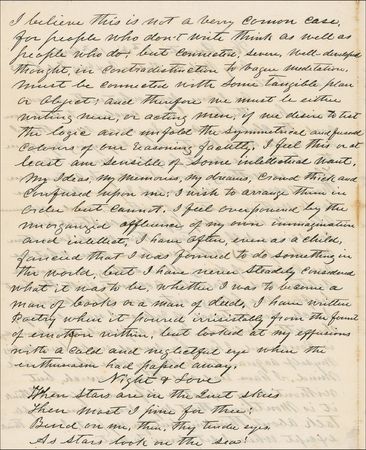 I believe this is not a very comon case,
for people who don't write think as well as
people who do; but connected, severe, well-developed
thought, in contradistinction to vague meditation,
must be connected with some tangible plan
or object; and therefore we must be either
writing men, or acting men, if we desire to test
the logic and unfold the symmetrical and fused
colours of our reasoning faculty, I feel this or at
least am sensible of some intellectual want,
My Ideas, my memories, my dreams, crowd thick and
confused upon me; I wish to arrange them in
order but cannot. I feel overpowered by the
unorganized affluence of my own immagination
and intellect, I have often, even as a child,
fancied that I was formed to do something in
the world, but I have never steadily considered
what it was to be, whether I was to become a
man of books or a man of deeds, I have written
Poetry when it poured irrisistibly from the fount
of emotion within, but looked at my effusions
with a cold and neglectful eye when the
enthusiasm had passed away.
Night & Love
When Stars are in the quiet skies
Then most I pine for thee;
Bend on me, then, thy tender eyes
As stars look on the sea!